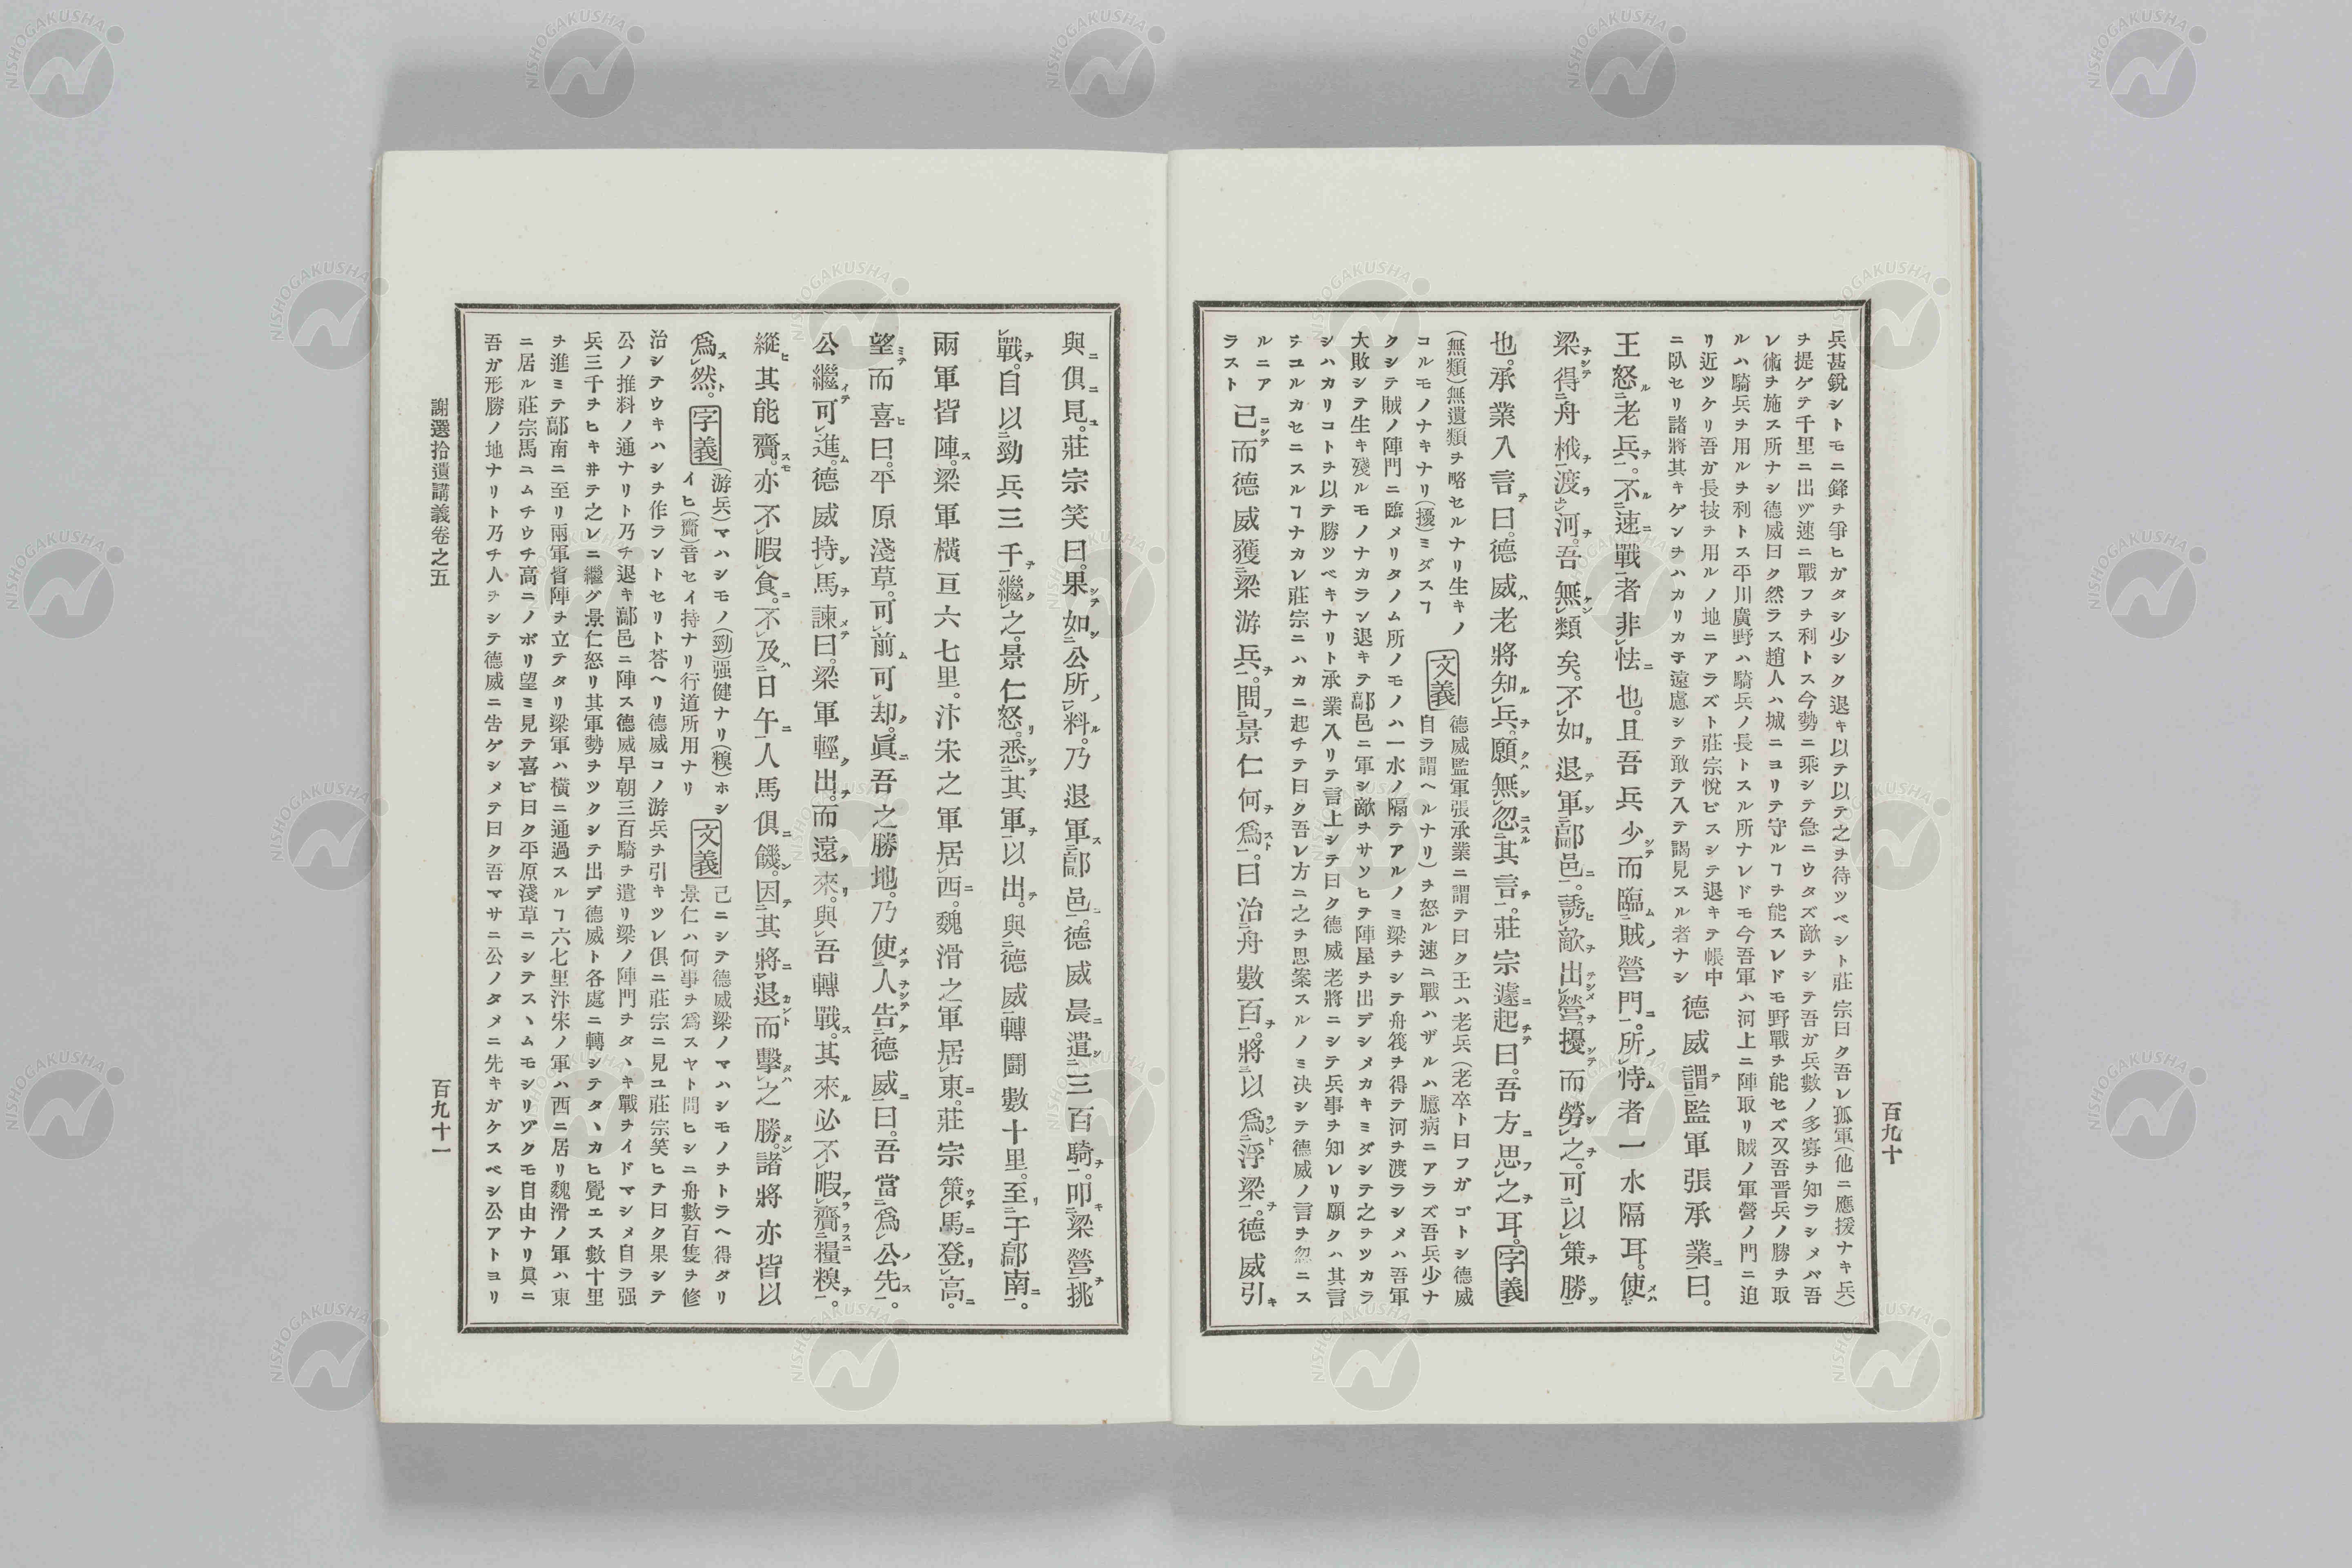 百九十
兵甚銳シトモニ鋒ヲ爭ヒガタシ少シク退キ以テ以テ之ヲ待ツベシト莊宗曰ク吾レ孤軍(他ニ應援ナキ兵)
ヲ提ゲテ千里ニ出ヅ速ニ戰フヲ利トス今勢ニ乘シテ急ニウタズ敵ヲシテ吾ガ兵數ノ多寡ヲ知ラシメバ吾
レ術ヲ施ス所ナシ德威曰ク然ラス趙人ハ城ニヨリテ守ルヿヲ能スレドモ野戰ヲ能セズ又吾晋兵ノ勝ヲ取
ルハ騎兵ヲ用ルヲ利トス平川廣野ハ騎兵ノ長トスル所ナレドモ今吾軍ハ河上ニ陣取リ賊ノ軍營ノ門ニ迫
リ近ツケリ吾カ長技ヲ用ルノ地ニアラズト莊宗悅ビスシテ退キテ帳中
ニ臥セリ諸將其キゲンヲハカリカ子遠慮シテ敢テ入テ謁見スル者ナシ
德威謂テ二監軍張承業ニ一曰。
王怒ル二老兵ヲ一。不ルレ速ニ戰者非レ怯ニ也。且吾兵少シテ而臨ム二賊ノ營門ニ一。所ノレ恃ム者一水隔耳。使メハ三
梁ヲシテ得二舟栰ヲ一渡ラレ河ヲ。吾無ケンレ類矣。不レ如カ退テ軍シ二鄗邑ニ一。誘ヒレ敵ヲ出テシメレ營ヲ。擾シテ而勞シレ之ヲ。可二以レ策ヲ勝ツ一
也。承業入言テ曰。德威ハ老將知ルレ兵ヲ。願クハ無シレ忽ニスル二其言ヲ一。莊宗遽ニ起チテ曰。吾方ニ思フレ之ヲ耳。字義
(無類)無遺類ヲ略セルナリ生キノ
コルモノナキナリ(擾)ミダスヿ
文義
德威監軍張承業ニ謂テ曰ク王ハ老兵(老卒ト曰フガゴトシ德威
自ラ謂ヘルナリ)ヲ怒ル速ニ戰ハザルハ臆病ニアラズ吾兵少ナ
クシテ賊ノ陣門ニ臨メリタノム所ノモノハ一水ノ隔テアルノミ梁ヲシテ舟筏ヲ得テ河ヲ渡ラシメハ吾軍
大敗シテ生キ殘ルモノナカラン退キテ鄗邑ニ軍シ敵ヲサソヒテ陣屋ヲ出デシメカキミダシテ之ヲツカラ
シハカリコトヲ以テ勝ツベキナリト承業入リテ言上シテ曰ク德威老將ニシテ兵事ヲ知レリ願クハ其言
ヲユルカセニスルヿナカレ莊宗ニハカニ起チテ曰ク吾レ方ニ之ヲ思案スルノミ決シテ德威ノ言ヲ忽ニス
ルニア
ラスト
已ニシテ而德威獲二梁游兵ヲ一。問フ二景仁何ヲ爲スト一。曰治二舟數百ヲ一。將三以爲ラント二浮梁ヲ一。德威引キ
與ニ俱ニ見ユ。莊宗笑曰。果シテ如シ二公所ノレ料ル。乃退軍ス二鄗邑ニ一。德威晨ニ遣シ二三百騎ヲ一。叩キ二梁營ヲ挑
レ戰ヲ。自以二勁兵三千ヲ一繼クレ之。景仁怒リ。悉シテ二其軍ヲ一以出テ。與二德威一轉鬪數十里。至リ二于鄗南ニ一。
兩軍皆陣ス。梁軍橫亘六七里。汴宋之軍居レ西ニ。魏滑之軍居レ東ニ。莊宗策ウチレ馬ニ登リレ高ニ。
望ミテ而喜ヒ曰。平原淺草。可レ前ム可レ却ク。眞ニ吾之勝地。乃使メテ二人ヲシテ告ケ二德威ニ一曰。吾當二爲レ公ノ先ス一。
公繼イテ可レ進ム。德威持シレ馬ヲ諫メテ曰。梁軍輕ク出ヲ。而遠ク來リ。與レ吾轉戰ス。其來ル必不レ暇アラ齎ラスニ二糧糗ヲ一。
縱ヒ其能齎スモ。亦不レ暇レ食ニ。不レ及ハ二日午ニ一人馬俱ニ饑ン。因テ二其將ニ退カント一而擊タハレ之勝タン。諸將亦皆以
爲スレ然ト。字義
(游兵)マハシモノ(勁)强健ナリ(糗)ホシ
イヒ(齎)音セイ持ナリ行道所用ナリ
文義
己ニシテ德威梁ノマハシモノヲトラヘ得タリ
景仁ハ何事ヲ爲スヤト問ヒシニ舟數百隻ヲ修
治シテウキハシヲ作ラントセリト荅ヘリ德威コノ游兵ヲ引キツレ俱ニ莊宗ニ見ユ莊宗笑ヒテ曰ク果シテ
公ノ推料ノ通ナリト乃チ退キ鄗邑ニ陣ス德威早朝三百騎ヲ遣リ梁ノ陣門ヲタヽキ戰ヲイドマシメ自ラ强
兵三千ヲヒキ井テ之レニ繼グ景仁怒リ其軍勢ヲツクシテ出デ德威ト各處ニ轉シテタヽカヒ覺エス數十里
ヲ進ミテ鄗南ニ至リ兩軍皆陣ヲ立テタリ梁軍ハ橫ニ通過スルヿ六七里汴宋ノ軍ハ西ニ居リ魏滑ノ軍ハ東
ニ居ル莊宗馬ニムチウチ高ニノボリ望ミ見テ喜ビ曰ク平原淺草ニシテスヽムモシリゾクモ自由ナリ眞ニ
吾ガ形勝ノ地ナリト乃チ人ヲシテ德威ニ告ゲシメテ曰ク吾マサニ公ノタメニ先キガケスベシ公アトヨリ
謝選拾遺講義卷之五
百九十一